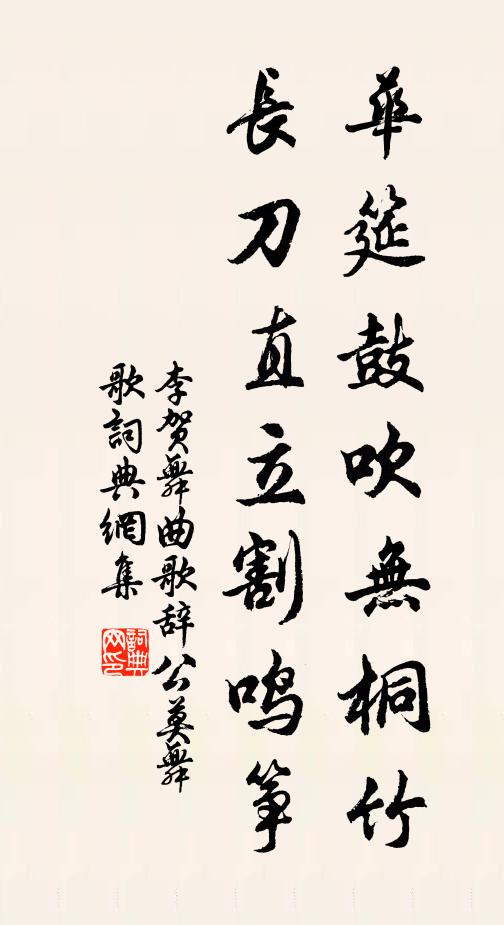 華筵鼓吹無桐竹
長刀直立割鳴筝
李賀舞曲歌辞公莫舞
歌詞典網集
詞典网印